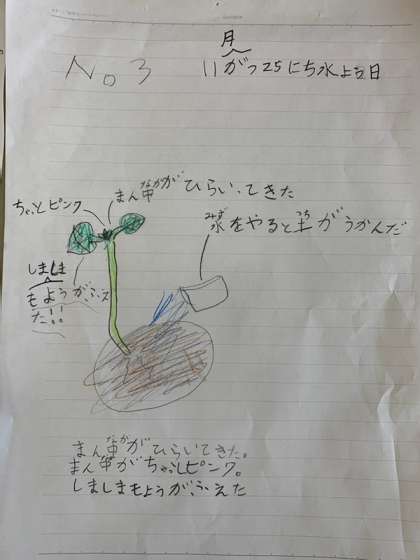 No 3
月
11がつ25にち水よう日
まん中がひらいてきた
なか
ちょっとピンク
水をやると土がうかんだ
みず
つち
しましま
もようがふえ
た!!
まん中がひらいてきた。
なか
まん中がちょっとピンク。
しましまもようがふえた